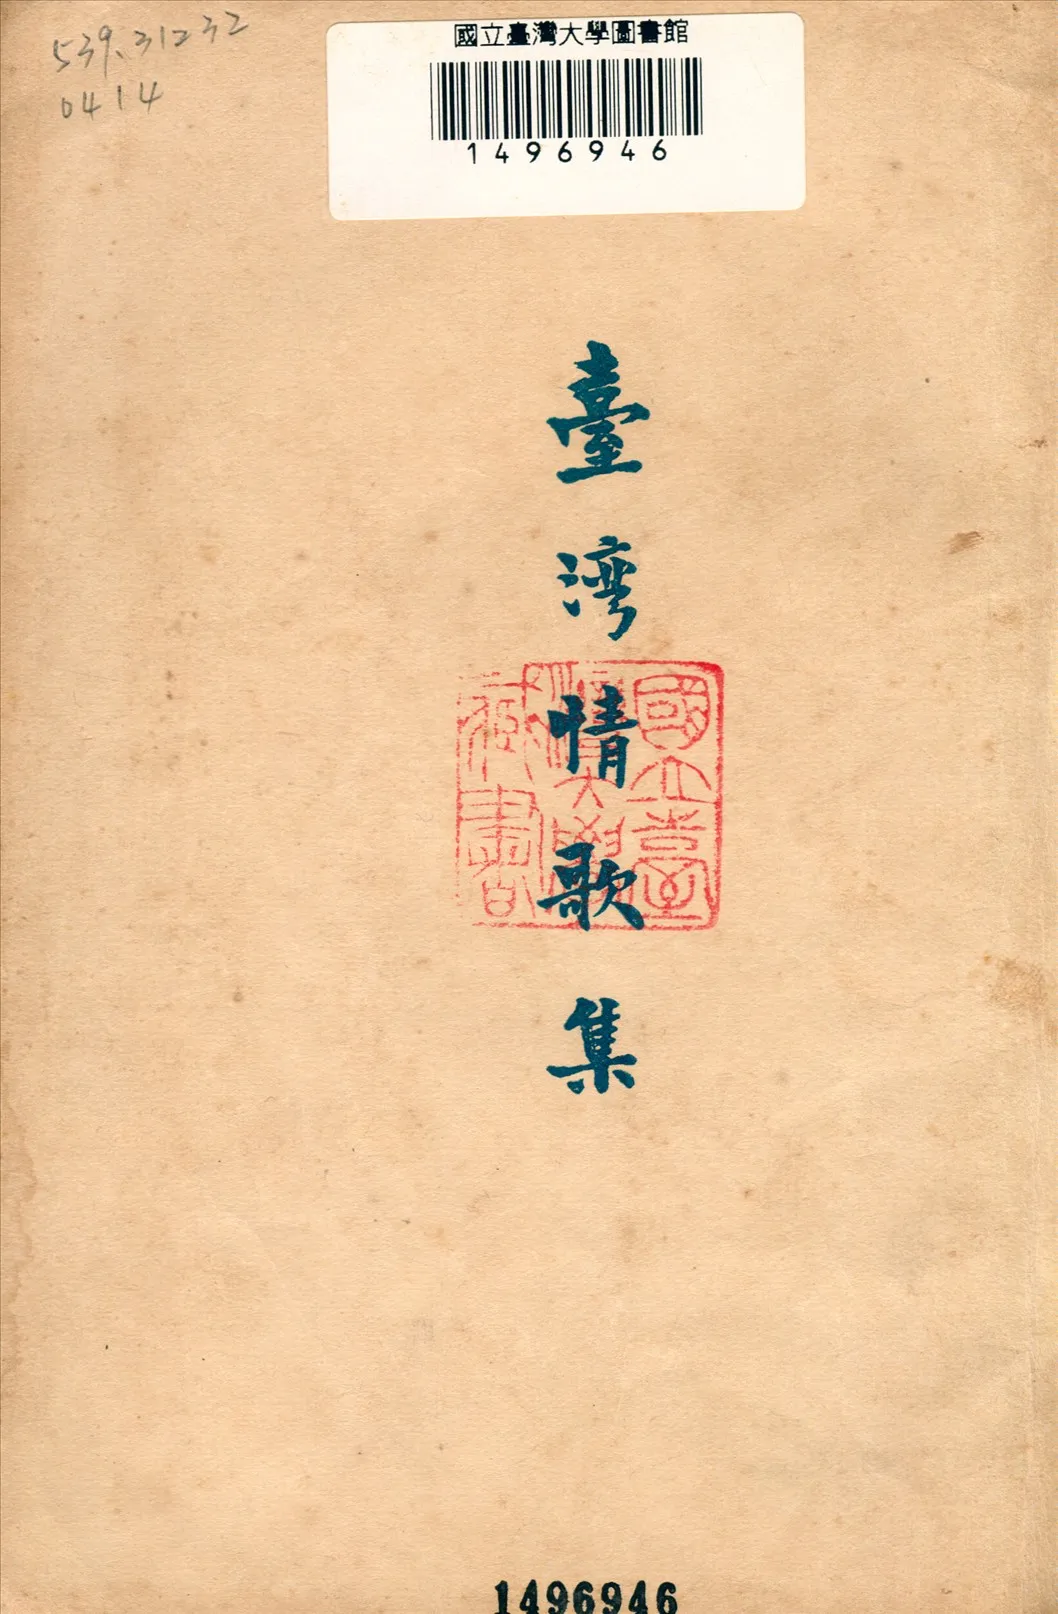 539.31232
0414
國立臺灣大學圖書館
1496946
臺湾情歌集
國立臺
灣大學
藏書
1496946